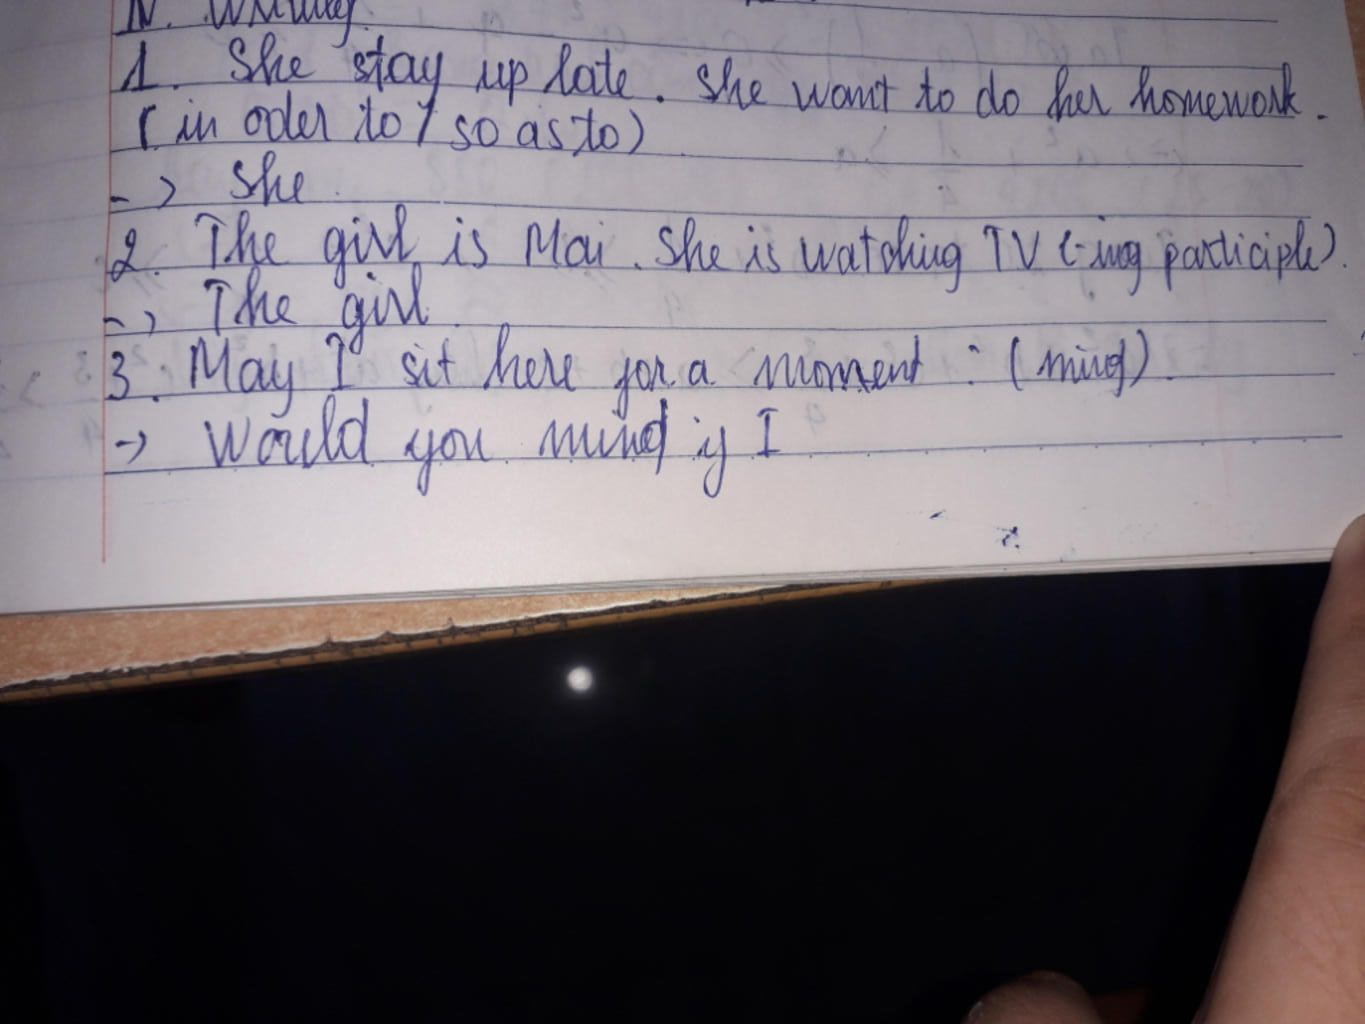 IV. Writing.
1. She stay up late. She want to do her homework.
(in oder to / so as to)
-> She
2. The girl is Mai. She is watching TV (-ing participle).
-> The girl
3. May I sit here for a moment : (mind).
-> Would you mind if I